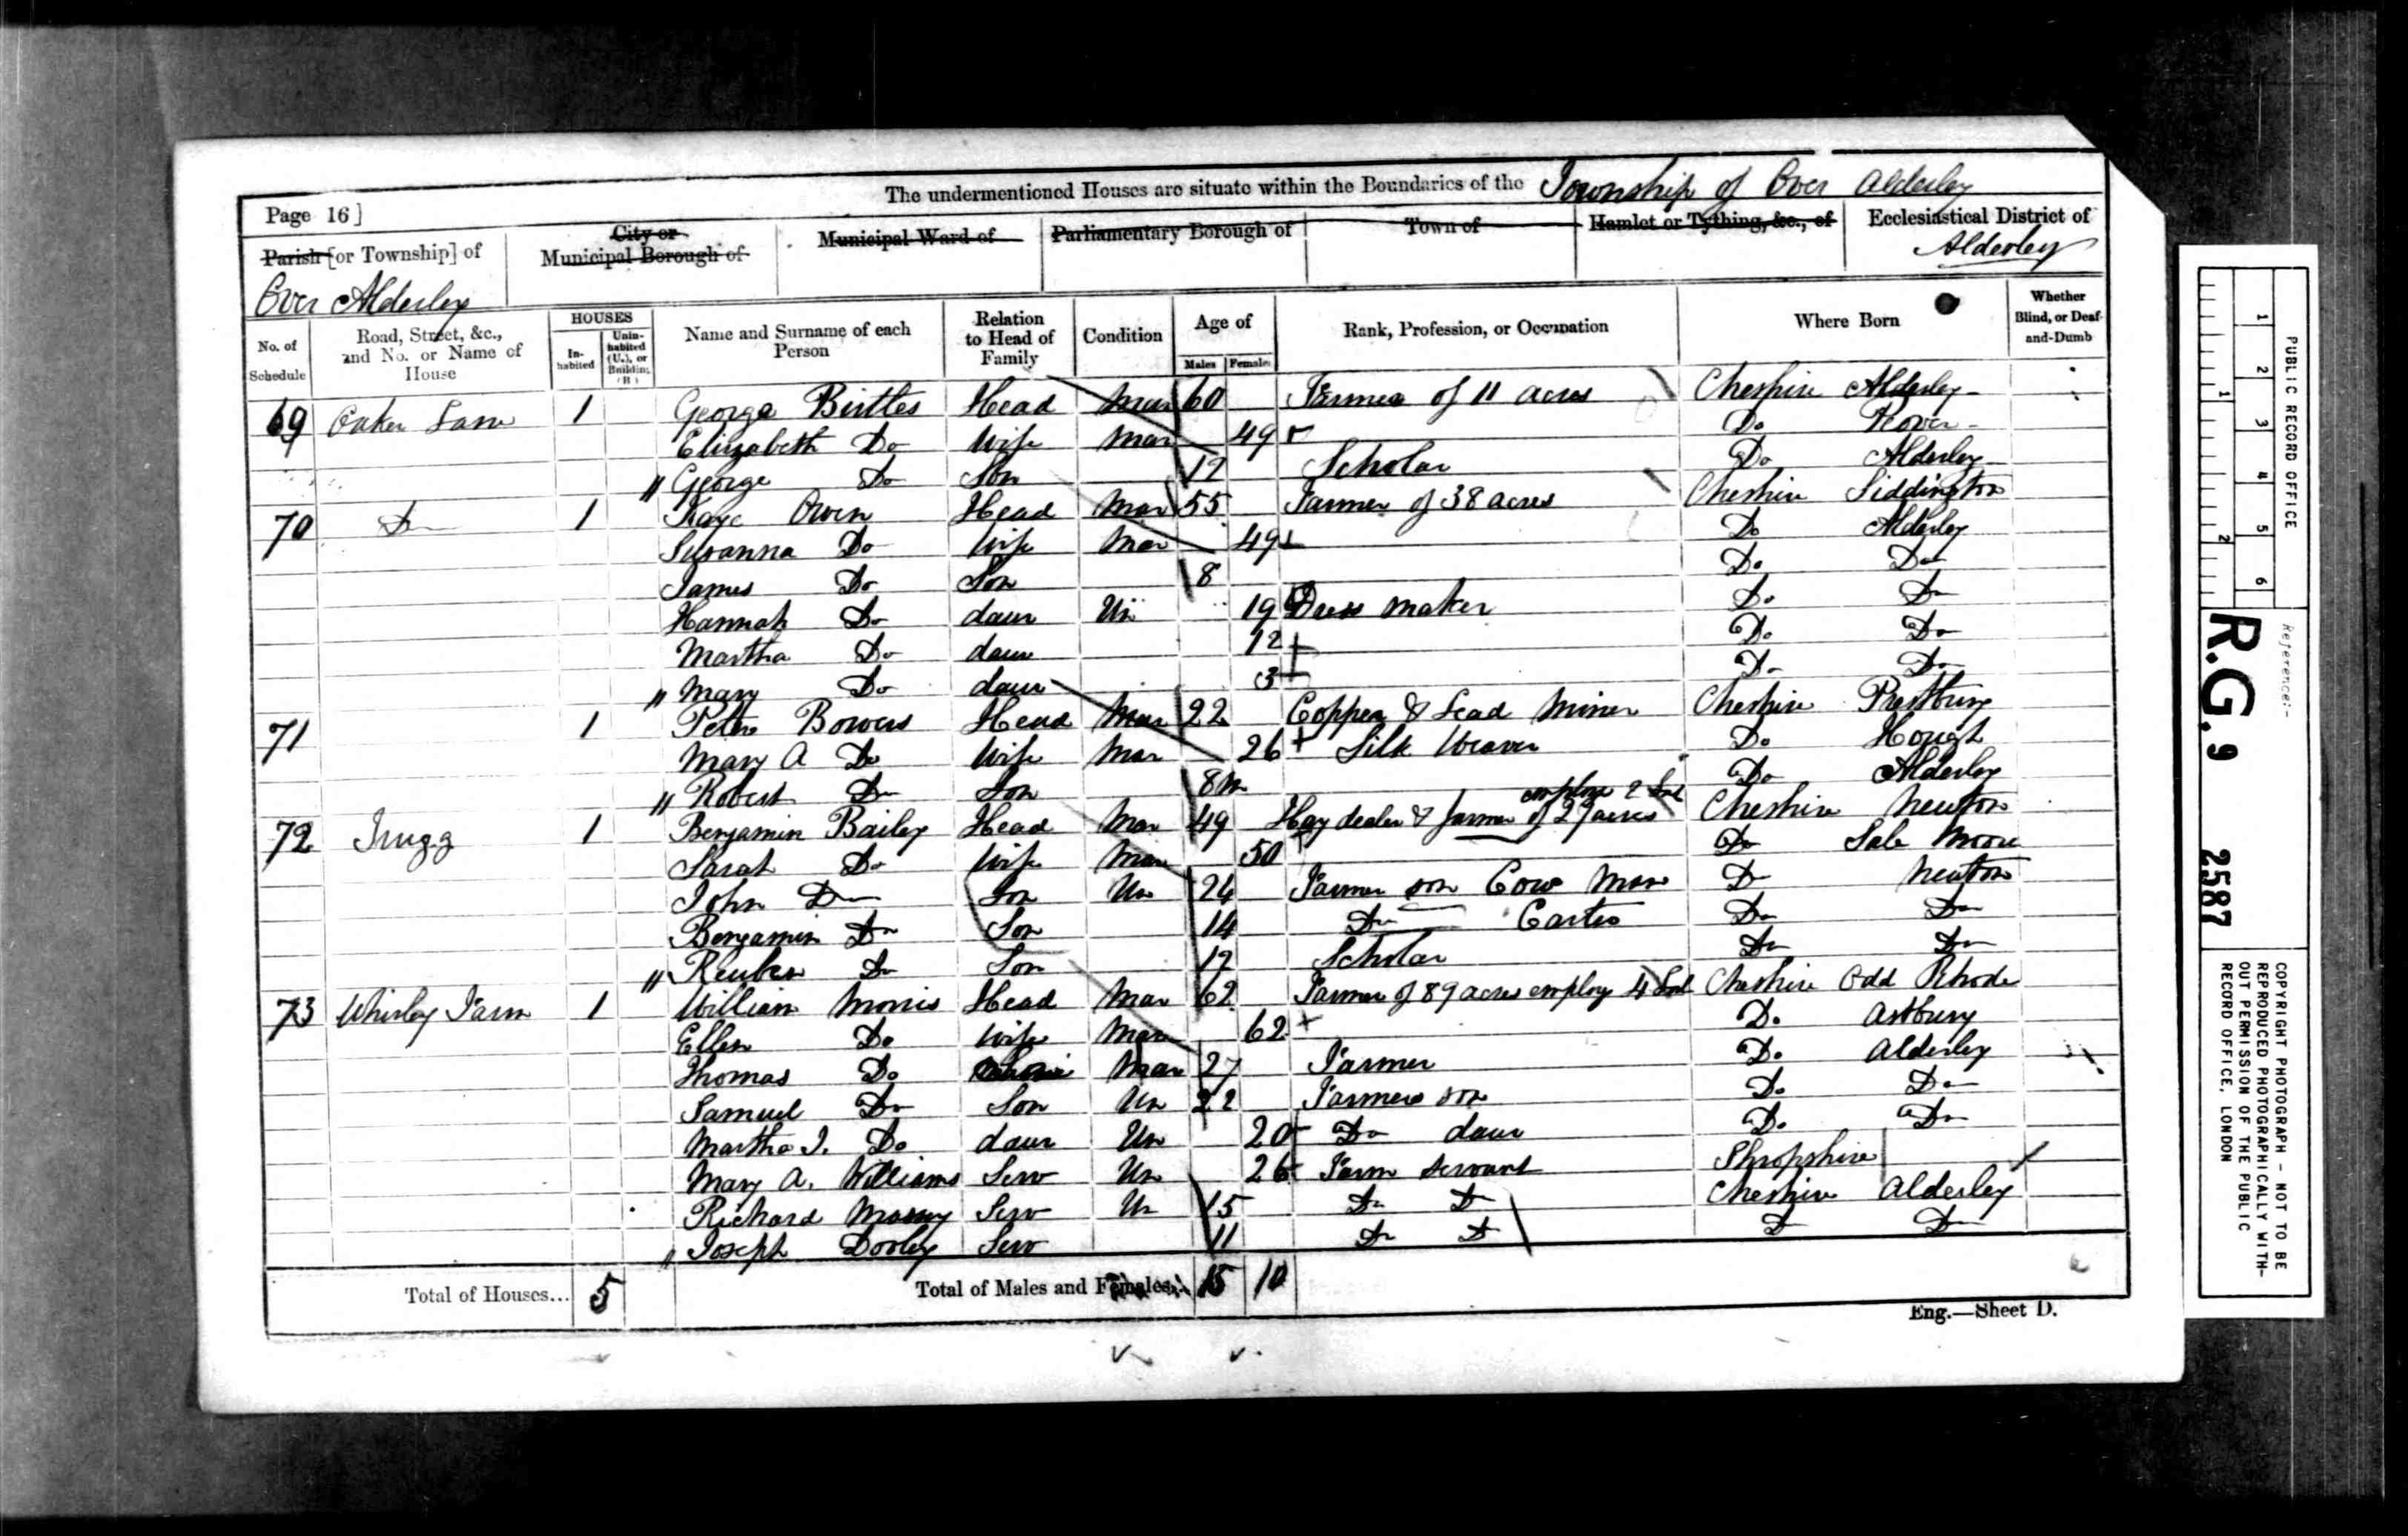 The undermentioned Houses are situate within the Boundaries of the Township of Over Alderley
Page 16]
Parish [or Township] of
Over Alderley
City or Municipal Borough of
Municipal Ward of
Parliamentary Borough of
Town of
Hamlet or Tything, &c., of
Ecclesiastical District of
Alderley
No. of Schedule
Road, Street, &c., and No. or Name of House
HOUSES
In-habited
Unin-habited (U.), or Building (B)
Name and Surname of each Person
Relation to Head of Family
Condition
Age of
Males
Females
Rank, Profession, or Occupation
Where Born
Whether Blind, or Deaf-and-Dumb
69 Oaker Lane 1 George Birtles Head Mar 60 Farmer of 11 acres Cheshire Alderley
Elizabeth Do Wife Mar 49 Do Peover
" George Do Son 12 Scholar Do Alderley
70 Do 1 Owen Head Mar 55 Farmer of 38 acres Cheshire Siddington
Susanna Do Wife Mar 49 Do Alderley
James Do Son 8 Do Do
Hannah Do daur Un 19 Dress maker Do Do
Martha Do daur 12 Do Do
" Mary Do daur 3 Do Do
71 1 Peter Bowers Head Mar 22 Copper & Lead Miner Cheshire Prestbury
Mary A Do Wife Mar 26 Silk Weaver Do Hough
" Robert Do Son 8m Do Alderley
72 1 Benjamin Bailey Head Mar 49 Hay dealer & farmer of 27 acres employ 2 Cheshire Newton
Sarah Do Wife Mar 50 Do Sale Moore
John Do Son Un 24 Farmer son Cow Man Do Newton
Benjamin Do Son 14 Do Carter Do Do
" Reuben Do Son 12 Scholar Do Do
73 Whirley Farm 1 William Morris Head Mar 62 Farmer of 89 acres employ 4 Cheshire Odd Rhode
Ellen Do Wife Mar 62 Do Astbury
Thomas Do Mar 27 Farmer Do Alderley
Samuel Do Son Un 22 Farmers son Do Do
Martha J. Do daur Un 20 Do daur Do Do
Mary A. Williams Serv Un 26 Farm Servant Shropshire
Richard Massey Serv Un 15 Do Do Cheshire Alderley
" Joseph Dooley Serv 11 Do Do Do Do
Total of Houses... 5
Total of Males and Females.. 15 10
Eng.—Sheet D.
1 2 3 4 5 6
1 2
PUBLIC RECORD OFFICE
Reference:-
R.G. 9 2587
COPYRIGHT PHOTOGRAPH - NOT TO BE
REPRODUCED PHOTOGRAPHICALLY WITH-
OUT PERMISSION OF THE PUBLIC
RECORD OFFICE, LONDON